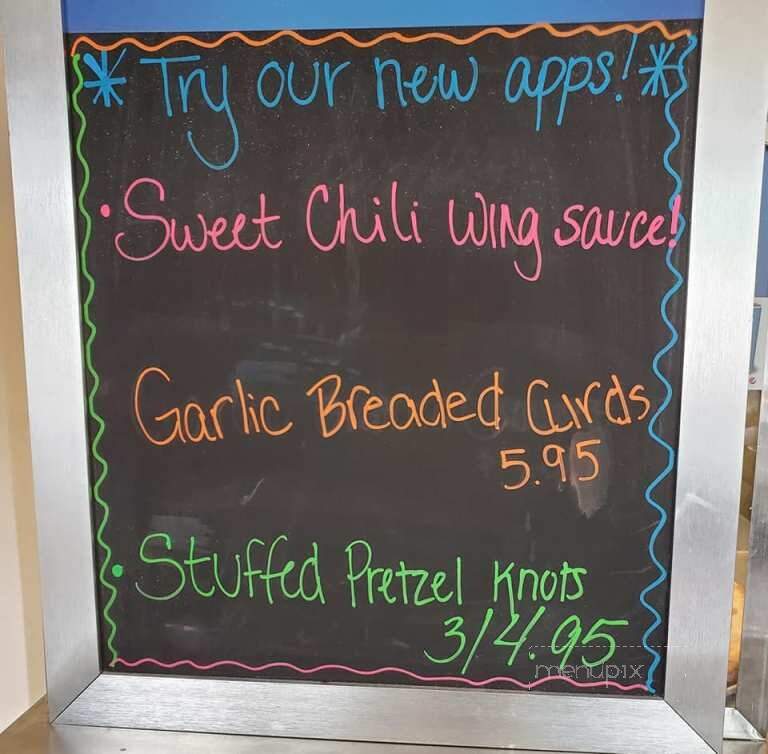 * Try our new apps! *
• Sweet Chili wing sauce!
Garlic Breaded Curds
5.95
• Stuffed Pretzel Knots
3/4.95
menupix